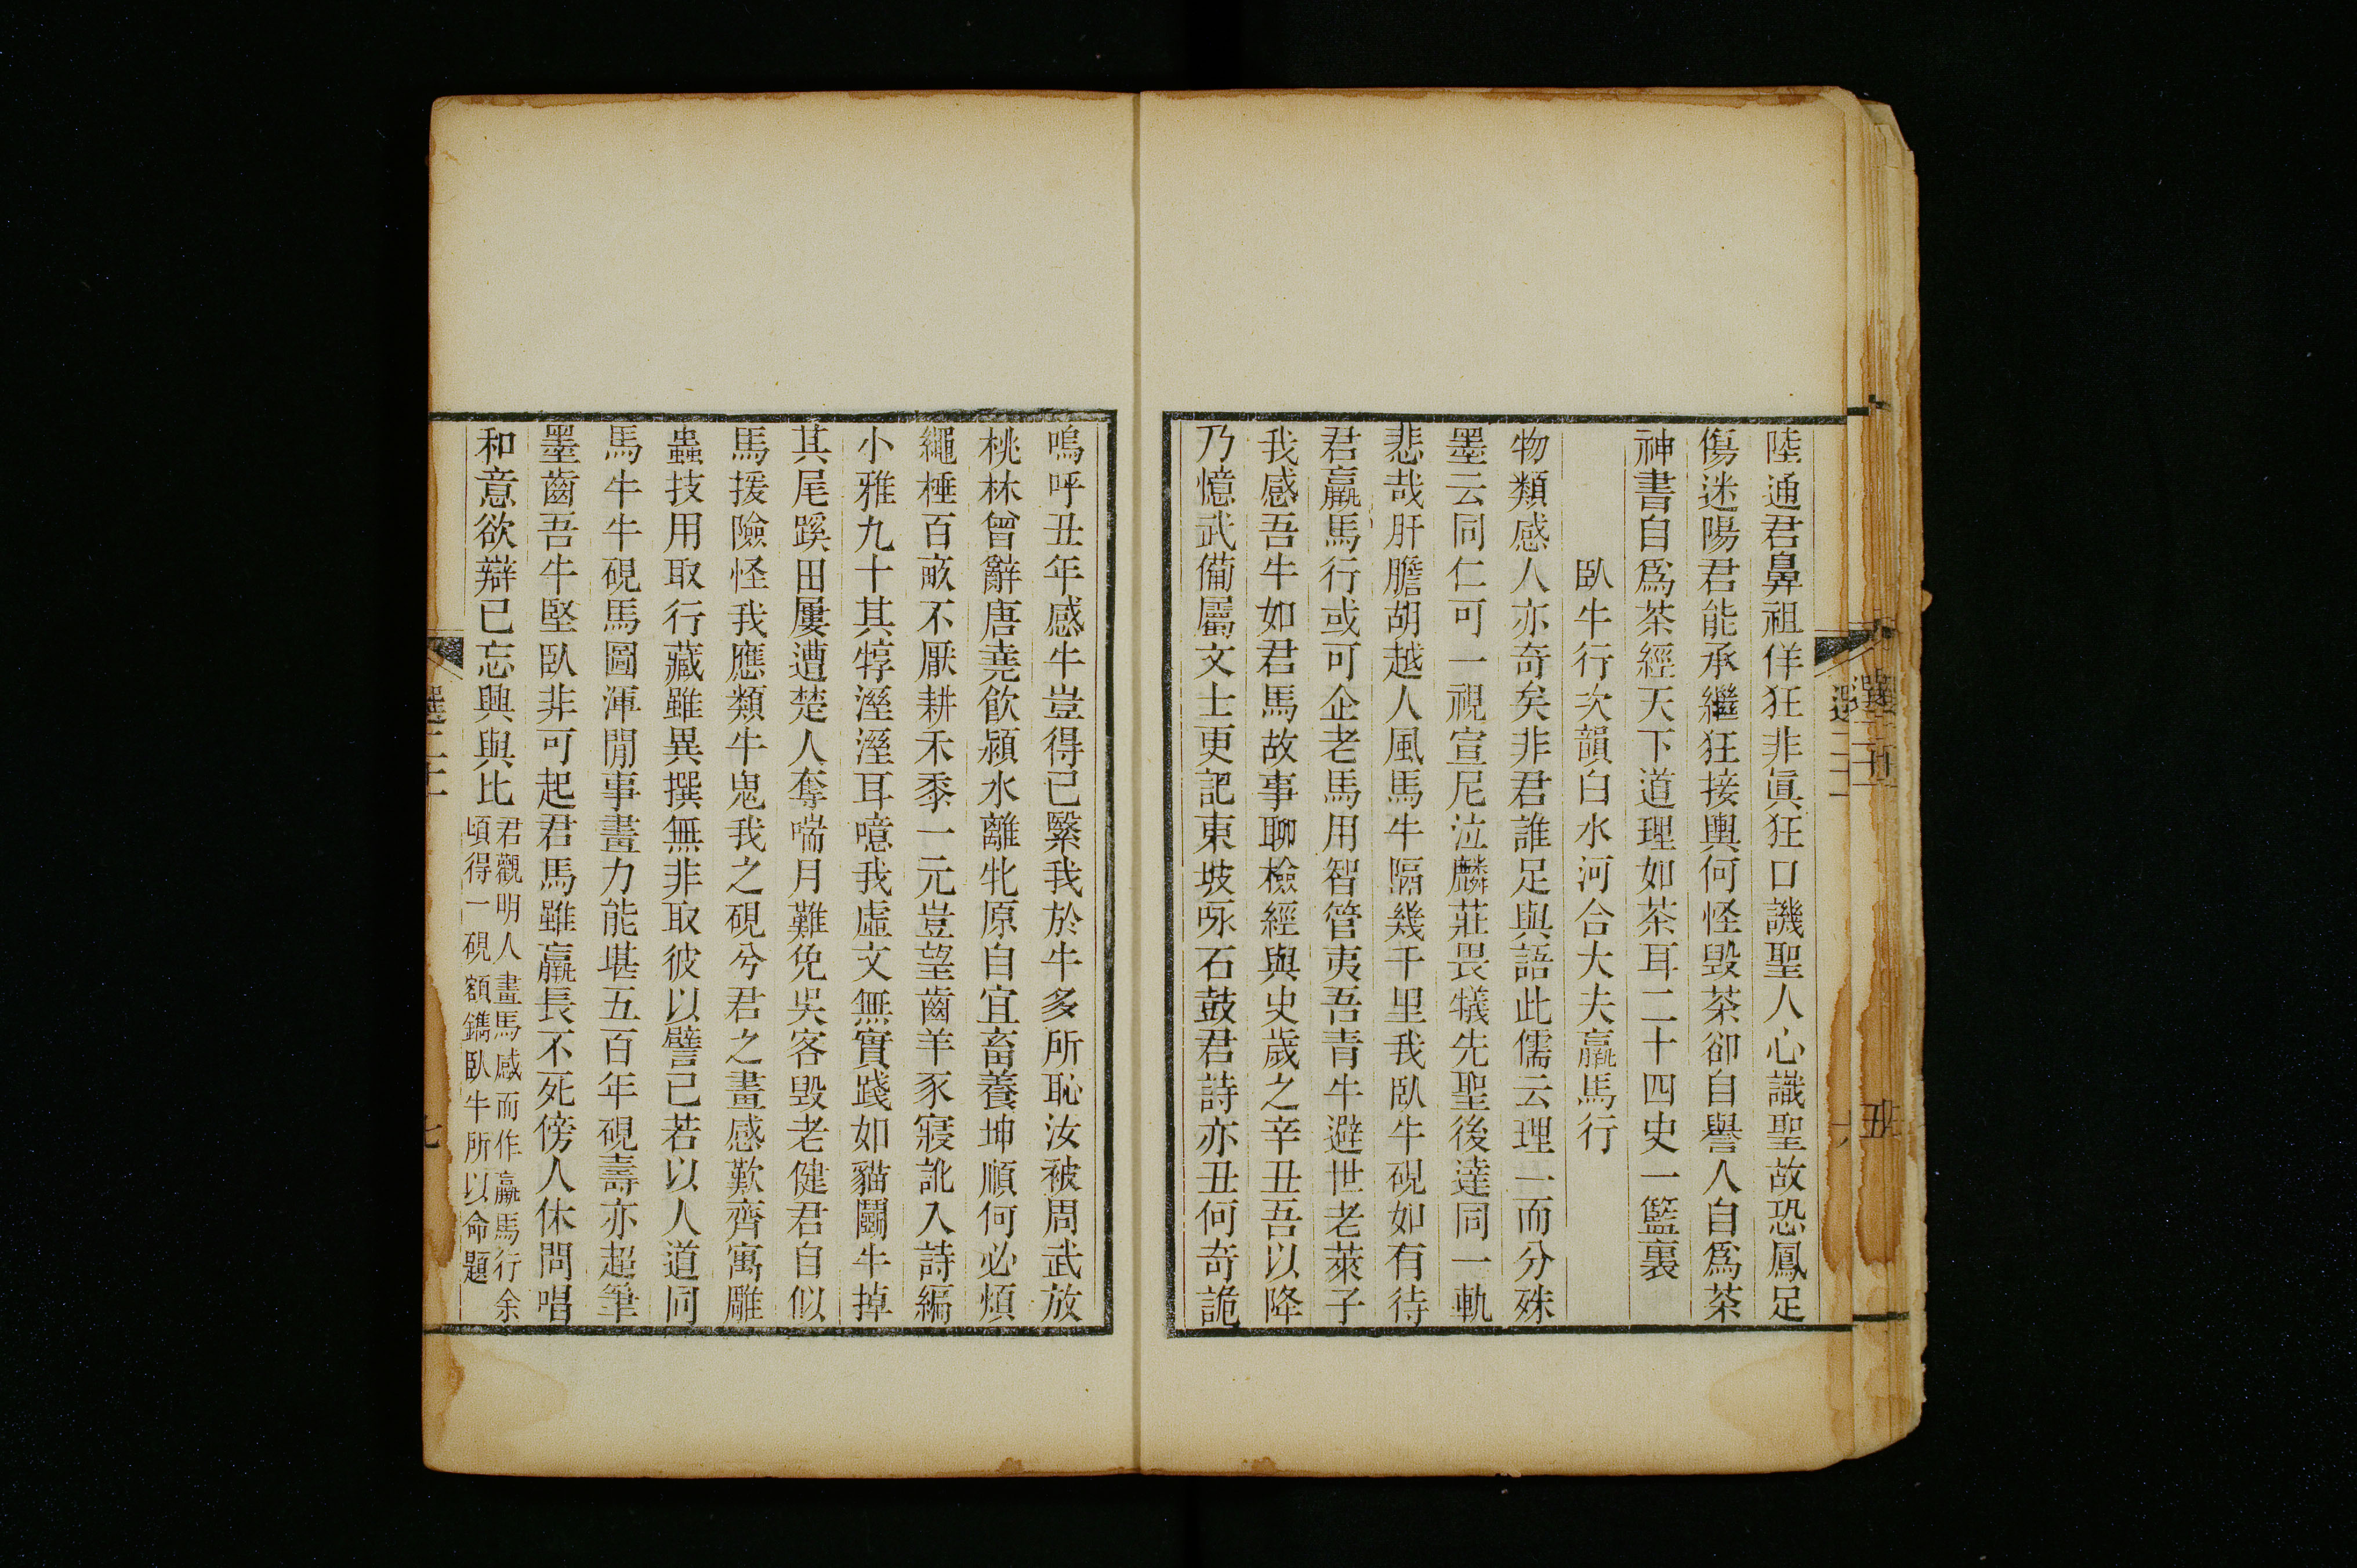 陸通君鼻祖佯狂非眞狂口譏聖人心識聖故恐鳳足
傷迷陽君能承繼狂接輿何怪毀茶卻自譽人自爲茶
神書自爲茶經天下道理如茶耳二十四史一籃裏
臥牛行次韻白水河合大夫羸馬行
物類感人亦奇矣非君誰足與語此儒云理一而分殊
墨云同仁可一視宣尼泣麟莊畏犧先聖後達同一軌
悲哉肝膽胡越人風馬牛隔幾千里我臥牛硯如有待
君羸馬行或可企老馬用智管夷吾青牛避世老萊子
我感吾牛如君馬故事聊檢經與史歲之辛丑吾以降
乃憶武備屬文士更記東坡咏石鼓君詩亦丑何奇詭
嗚呼丑年感牛豈得已繄我於牛多所恥汝被周武放
桃林曾辭唐堯飲潁水離牝原自宜畜養坤順何必煩
繩棰百畝不厭耕禾黍一元豈望齒羊豕寢訛入詩編
小雅九十其犉溼溼耳噫我虛文無實踐如貓鬬牛掉
其尾蹊田屢遭楚人奪喘月難免吳客毀老健君自似
馬援險怪我應類牛鬼我之硯兮君之畫感歎齊寓雕
蟲技用取行藏雖異撰無非取彼以譬已若以人道同
馬牛牛硯馬圖渾閒事畫力能堪五百年硯壽亦超筆
墨齒吾牛堅臥非可起君馬雖羸長不死傍人休問唱
和意欲辯已忘興與比
君觀明人畫馬感而作羸馬行余
頃得一硯額鐫臥牛所以命題
七